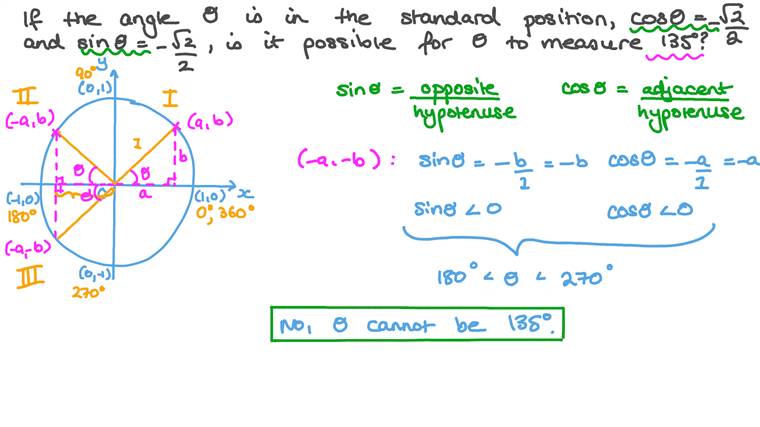 If the angle θ is in the standard position, cosθ = -√2/2
and sinθ = -√2/2, is it possible for θ to measure 135°?
90° y
II (0,1) I
(-a,b) (a,b)
1
θ θ b
(-1,0) θ a (1,0) x
180° 0°, 360°
(-a,-b)
III (0,-1)
270°
sinθ = opposite/hypotenuse cosθ = adjacent/hypotenuse
(-a,-b): sinθ = -b/1 = -b cosθ = -a/1 = -a
sinθ < 0 cosθ < 0
180° < θ < 270°
No, θ cannot be 135°.